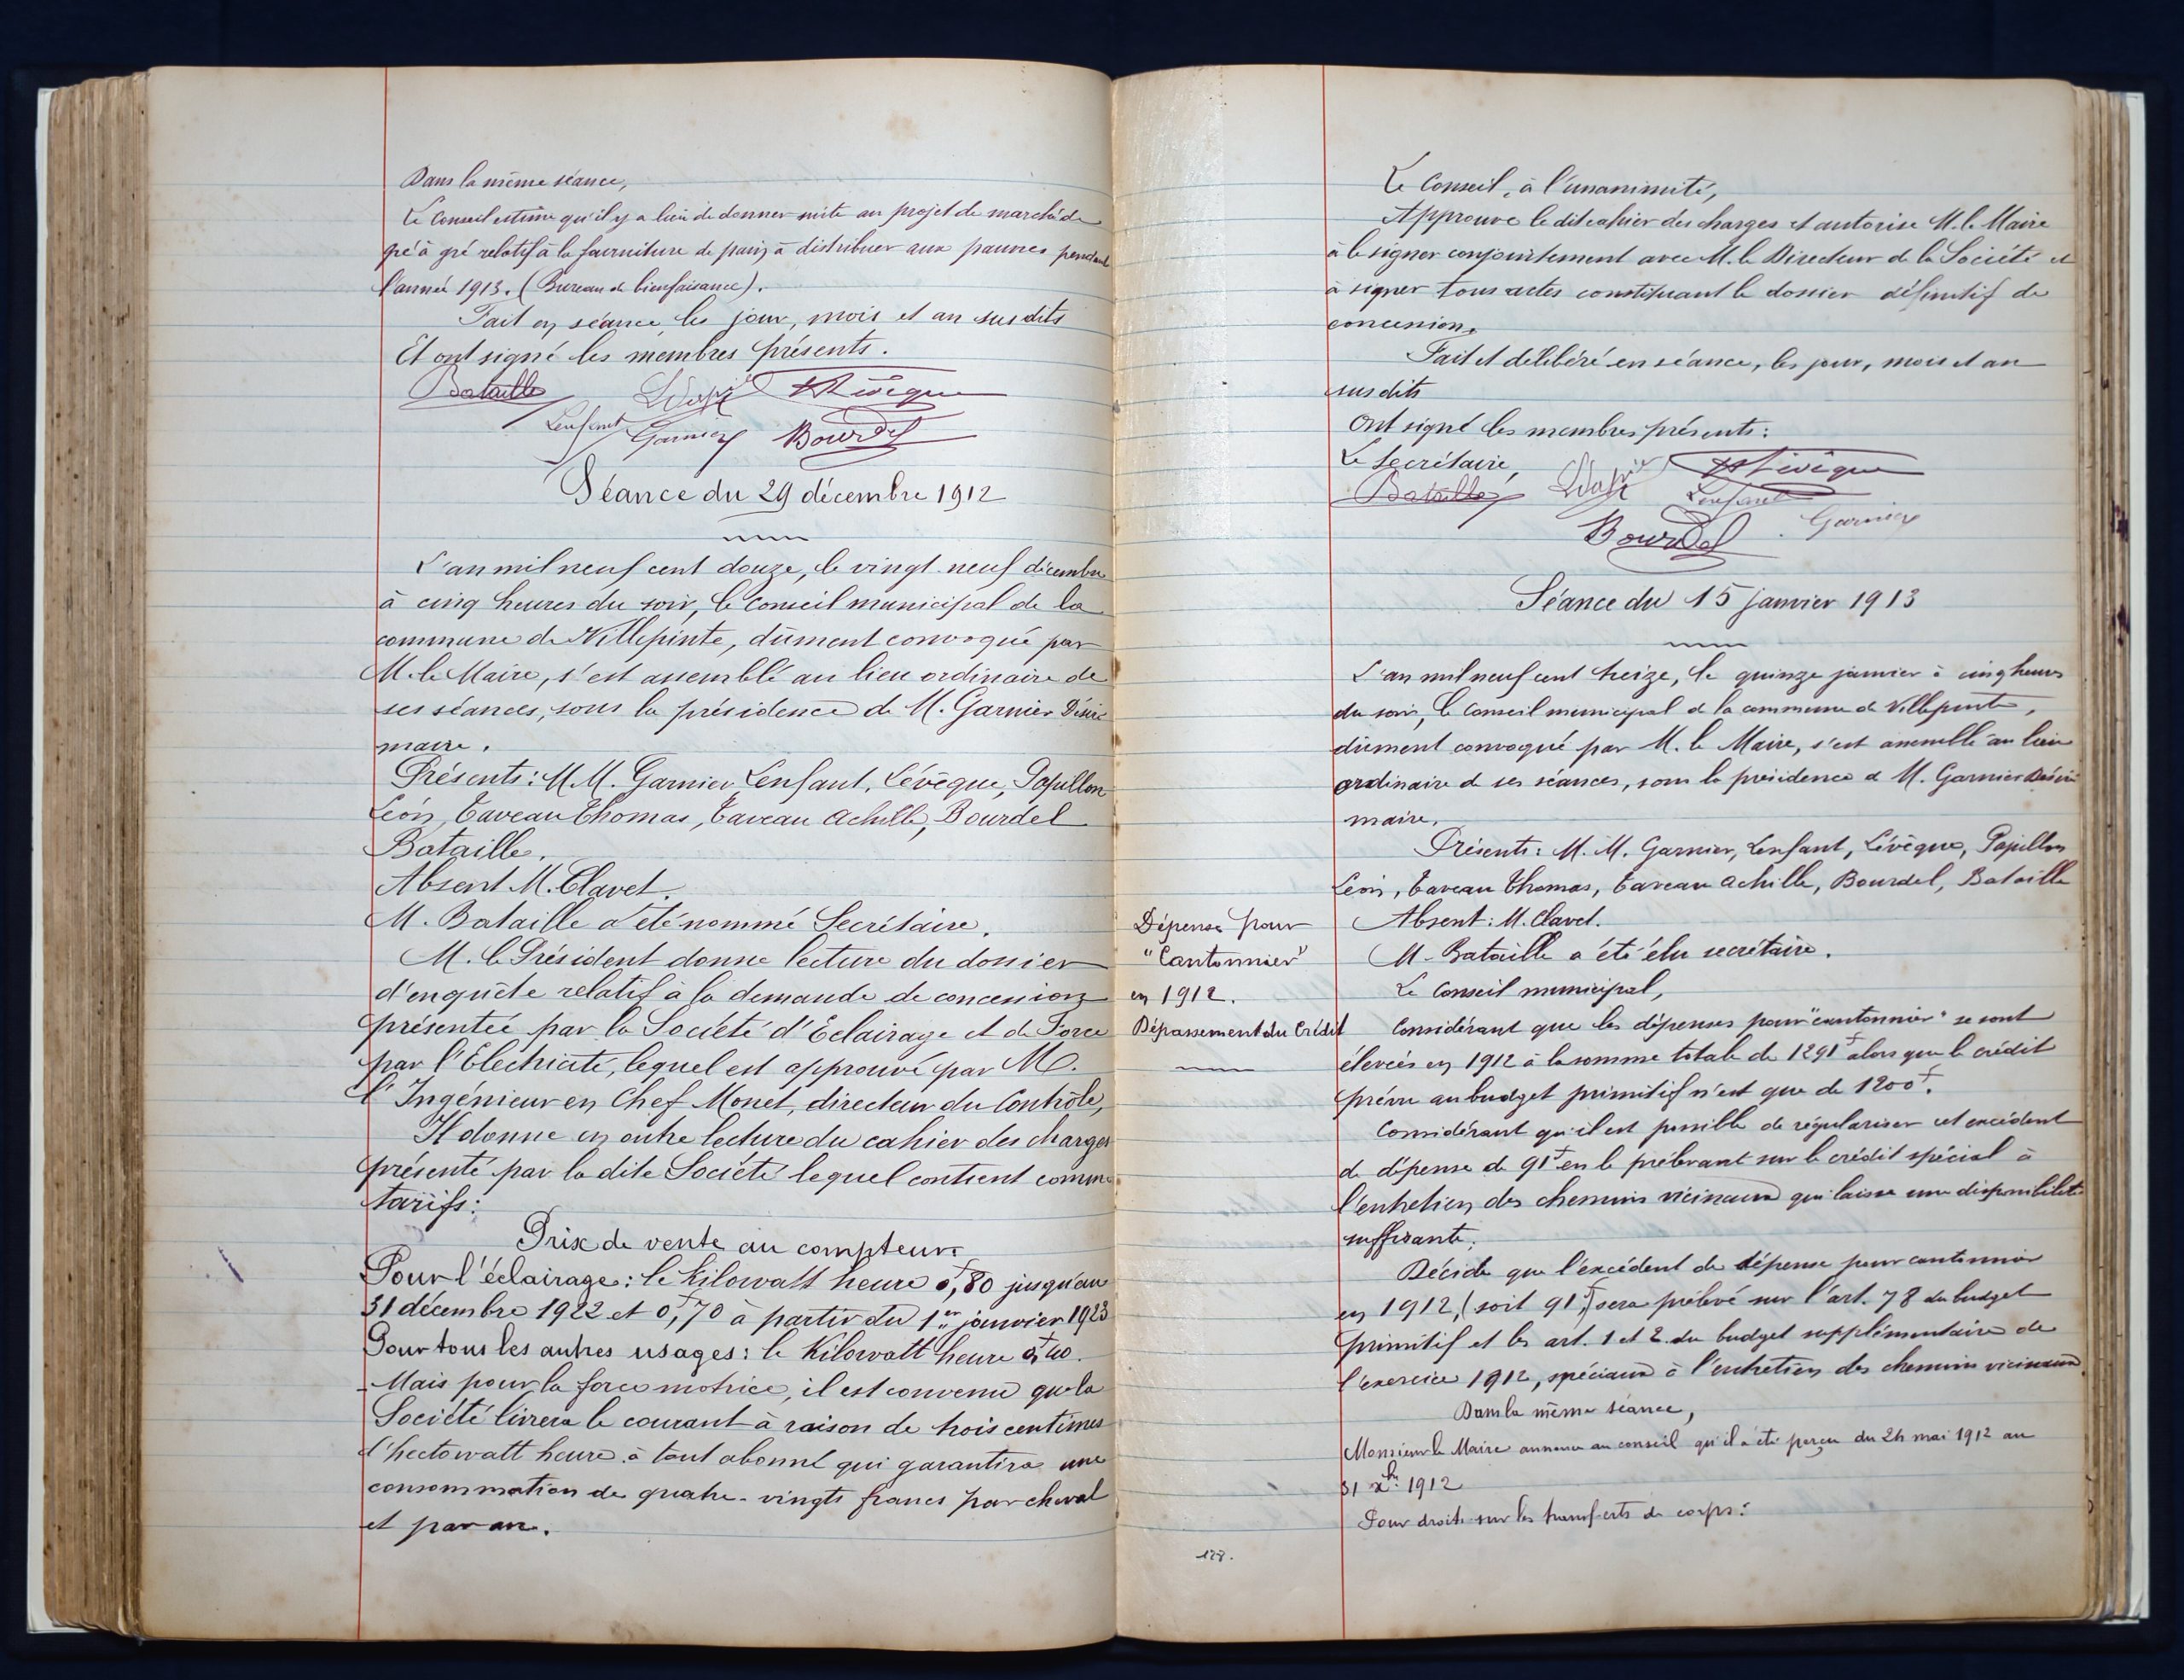 Dans la même séance,
Le Conseil estime qu'il y a lieu de donner suite au projet de marché de
gré à gré relatif à la fourniture de pain à distribuer aux pauvres pendant
l'année 1913. (Bureau de bienfaisance).
Fait en séance les jour, mois et an susdits
Et ont signé les membres présents.
Bataille Lévêque
Lenfant Garnier Bourdel
Séance du 29 décembre 1912
L'an mil neuf cent douze, le vingt-neuf décembre
à cinq heures du soir, le Conseil municipal de la
commune de Villepinte, dûment convoqué par
M. le Maire, s'est assemblé au lieu ordinaire de
ses séances, sous la présidence de M. Garnier Désiré
maire.
Présents: M.M. Garnier, Lenfant, Lévêque, Papillon
Léon, Taveau Thomas, Taveau Achille, Bourdel
Bataille.
Absent M. Clavel.
M. Bataille a été nommé Secrétaire.
M. le Président donne lecture du dossier
d'enquête relatif à la demande de concession
présentée par la Société d'Eclairage et de Force
par l'Electricité, lequel est approuvé par M.
l'Ingénieur en Chef Monet, directeur du Contrôle,
Il donne en outre lecture du cahier des charges
présenté par la dite Société lequel contient comme
tarifs:
Prix de vente au compteur.
Pour l'éclairage: le Kilowatt heure 0f,80 jusqu'au
31 décembre 1922 et 0f,70 à partir du 1er janvier 1923
Pour tous les autres usages: le Kilowatt heure 0f,40.
- Mais pour la force motrice, il est convenu que la
Société livrera le courant à raison de trois centimes
l'hectowatt heure à tout abonné qui garantira une
consommation de quatre-vingts francs par cheval
et par an.
Le Conseil, à l'unanimité,
Approuve le dit cahier des charges et autorise M. le Maire
à le signer conjointement avec M. le Directeur de la Société et
à signer tous actes constituant le dossier définitif de
concession.
Fait et délibéré en séance, les jour, mois et an
susdits
Ont signé les membres présents:
Le Secrétaire,
Bataille Lévêque
Lenfant Garnier
Bourdel
Séance du 15 janvier 1913
L'an mil neuf cent treize, le quinze janvier à cinq heures
du soir, le Conseil municipal de la commune de Villepinte,
dûment convoqué par M. le Maire, s'est assemblé au lieu
ordinaire de ses séances, sous la présidence de M. Garnier Désiré
maire.
Présents: M. M. Garnier, Lenfant, Lévêque, Papillon
Léon, Taveau Thomas, Taveau Achille, Bourdel, Bataille
Absent: M. Clavel.
M. Bataille a été élu secrétaire.
Dépense pour
"Cantonnier"
en 1912.
Dépassement du Crédit
Le Conseil municipal,
Considérant que les dépenses pour "cantonnier" se sont
élevées en 1912 à la somme totale de 1291f alors que le crédit
prévu au budget primitif n'est que de 1200f.
Considérant qu'il est possible de régulariser cet excédent
de dépense de 91f en le prélevant sur le crédit spécial à
l'entretien des chemins vicinaux qui laisse une disponibilité
suffisante;
Décide que l'excédent de dépense pour cantonnier
en 1912, (soit 91f,) sera prélevé sur l'art. 78 du budget
primitif et les art. 1 et 2 du budget supplémentaire de
l'exercice 1912, spéciaux à l'entretien des chemins vicinaux
Dans la même séance,
Monsieur le Maire annonce au conseil qu'il a été perçu du 24 mai 1912 au
31 xbre 1912
Pour droits sur les transferts de corps:
128.